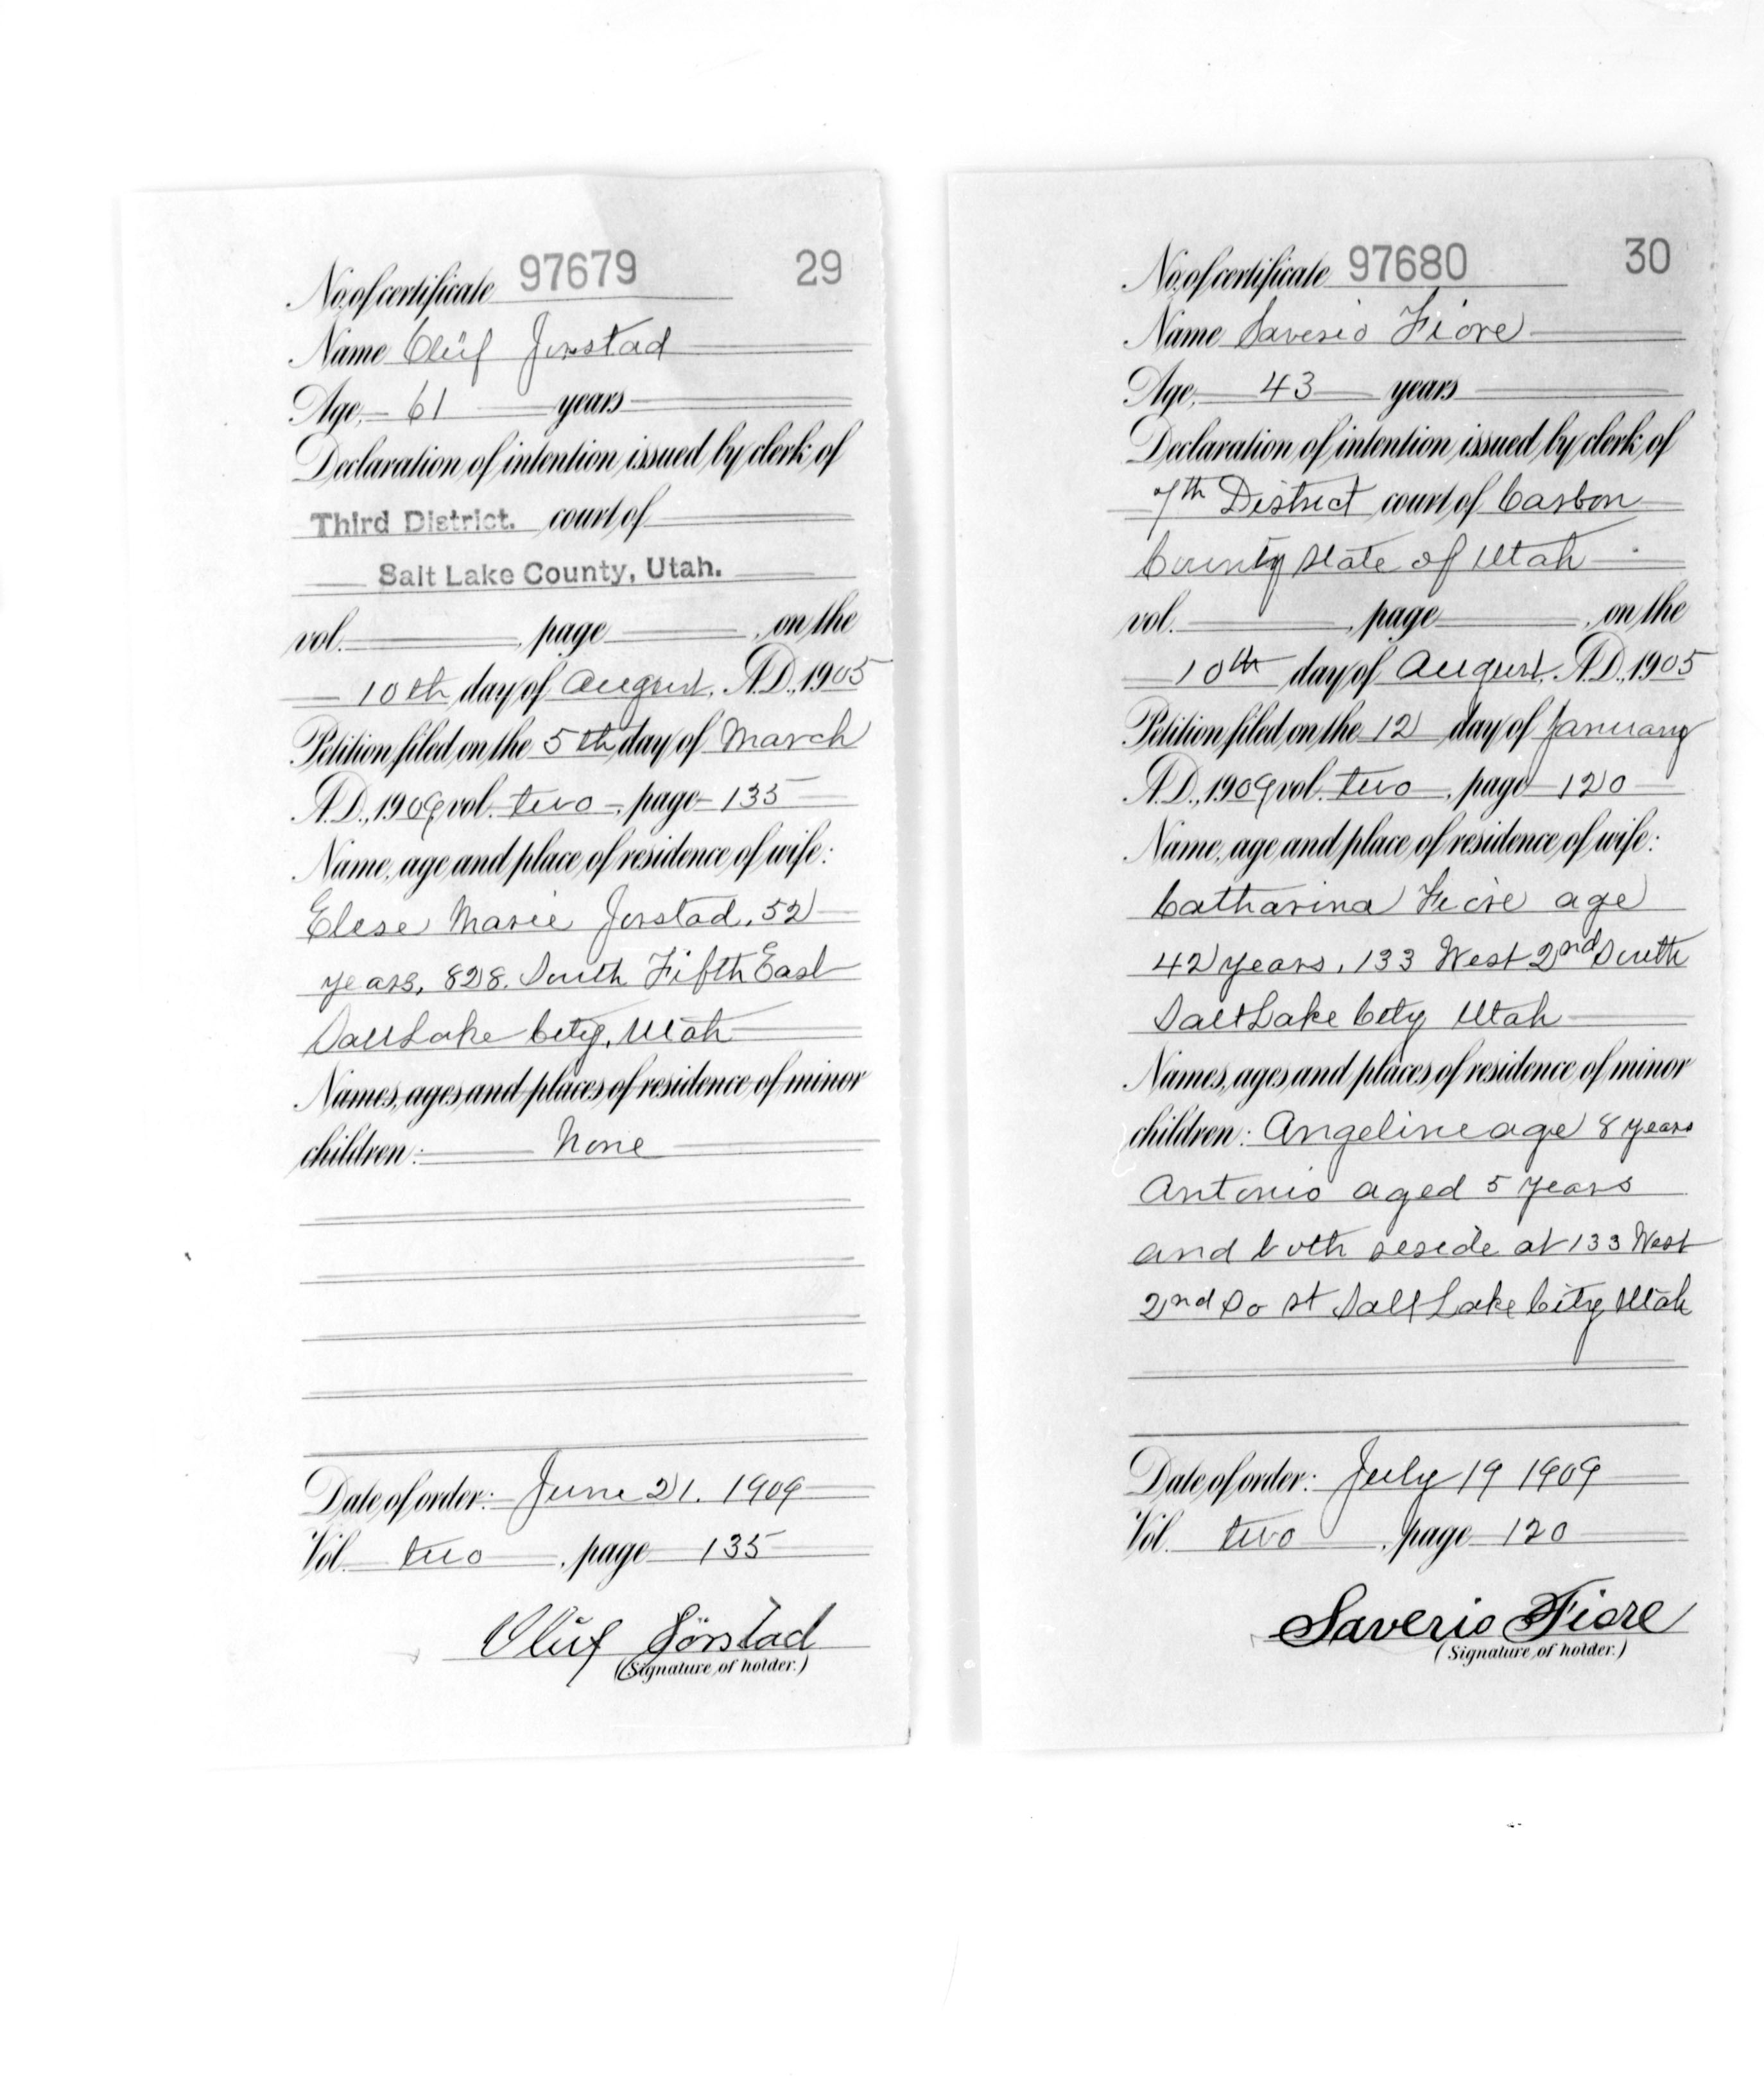 No. of certificate 97679 29
Name Oluf Jorstad
Age, 61 years
Declaration of intention issued by clerk of
Third District. court of
Salt Lake County, Utah.
vol. , page , on the
10th day of August, A.D., 1905
Petition filed on the 5th day of March
A.D., 1909 vol. two, page 135
Name, age and place of residence of wife:
Elese Marie Jorstad, 52
years, 828. South Fifth East
Salt Lake City, Utah
Names, ages and places of residence of minor
children: None
Date of order: June 21. 1909
Vol. two, page 135
Oluf Jörstad
(Signature of holder.)
No. of certificate 97680 30
Name Saverio Fiore
Age, 43 years
Declaration of intention issued by clerk of
7th District court of Carbon
County State of Utah
vol. , page , on the
10th day of August, A.D., 1905
Petition filed on the 12 day of January
A.D., 1909 vol. two, page 120
Name, age and place of residence of wife:
Catharina Fiore age
42 years, 133 West 2nd South
Salt Lake City Utah
Names, ages and places of residence of minor
children: Angeline age 8 years
Antonio aged 5 years
and both reside at 133 West
2nd So st Salt Lake City Utah
Date of order: July 19 1909
Vol. two, page 120
Saverio Fiore
(Signature of holder.)